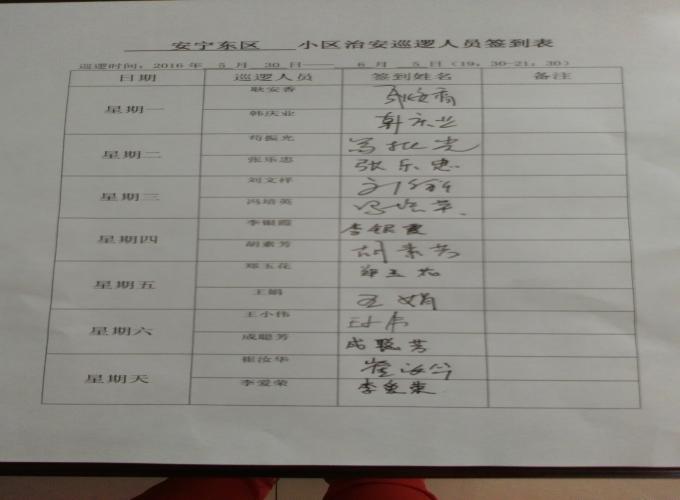 安宁东区 小区治安巡逻人员签到表
巡逻时间：2016 年 5 月 30 日—— 6 月 5 日（19：30-21：30）
日期 巡逻人员 签到姓名 备注
星期一 耿安香
韩庆业 韩庆业
星期二 苟振光
张乐忠 张乐忠
星期三 刘文祥
冯培英
星期四 李银霞 李银霞
胡素芳 胡素芳
星期五 郑玉花 郑玉花
王娟 王娟
星期六 王小伟 王小伟
成聪芳 成聪芳
星期天 崔汝华 崔汝华
李爱荣 李爱荣